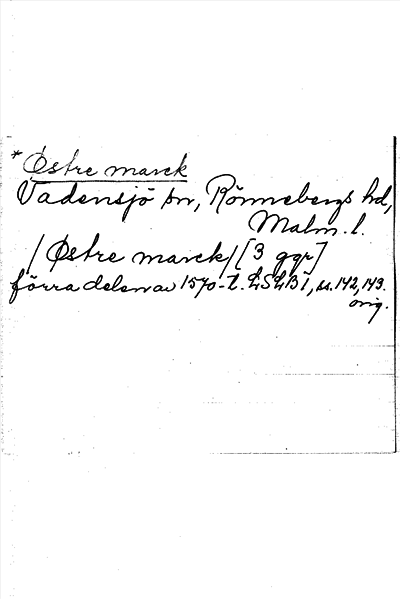 *Østre marck
Vadensjö sn, Rönnebergs hd,
Malm. l.
/Østre marck/ [3 ggr]
förra delen av 1570-t. LSLB I, ss. 142, 143.
orig.